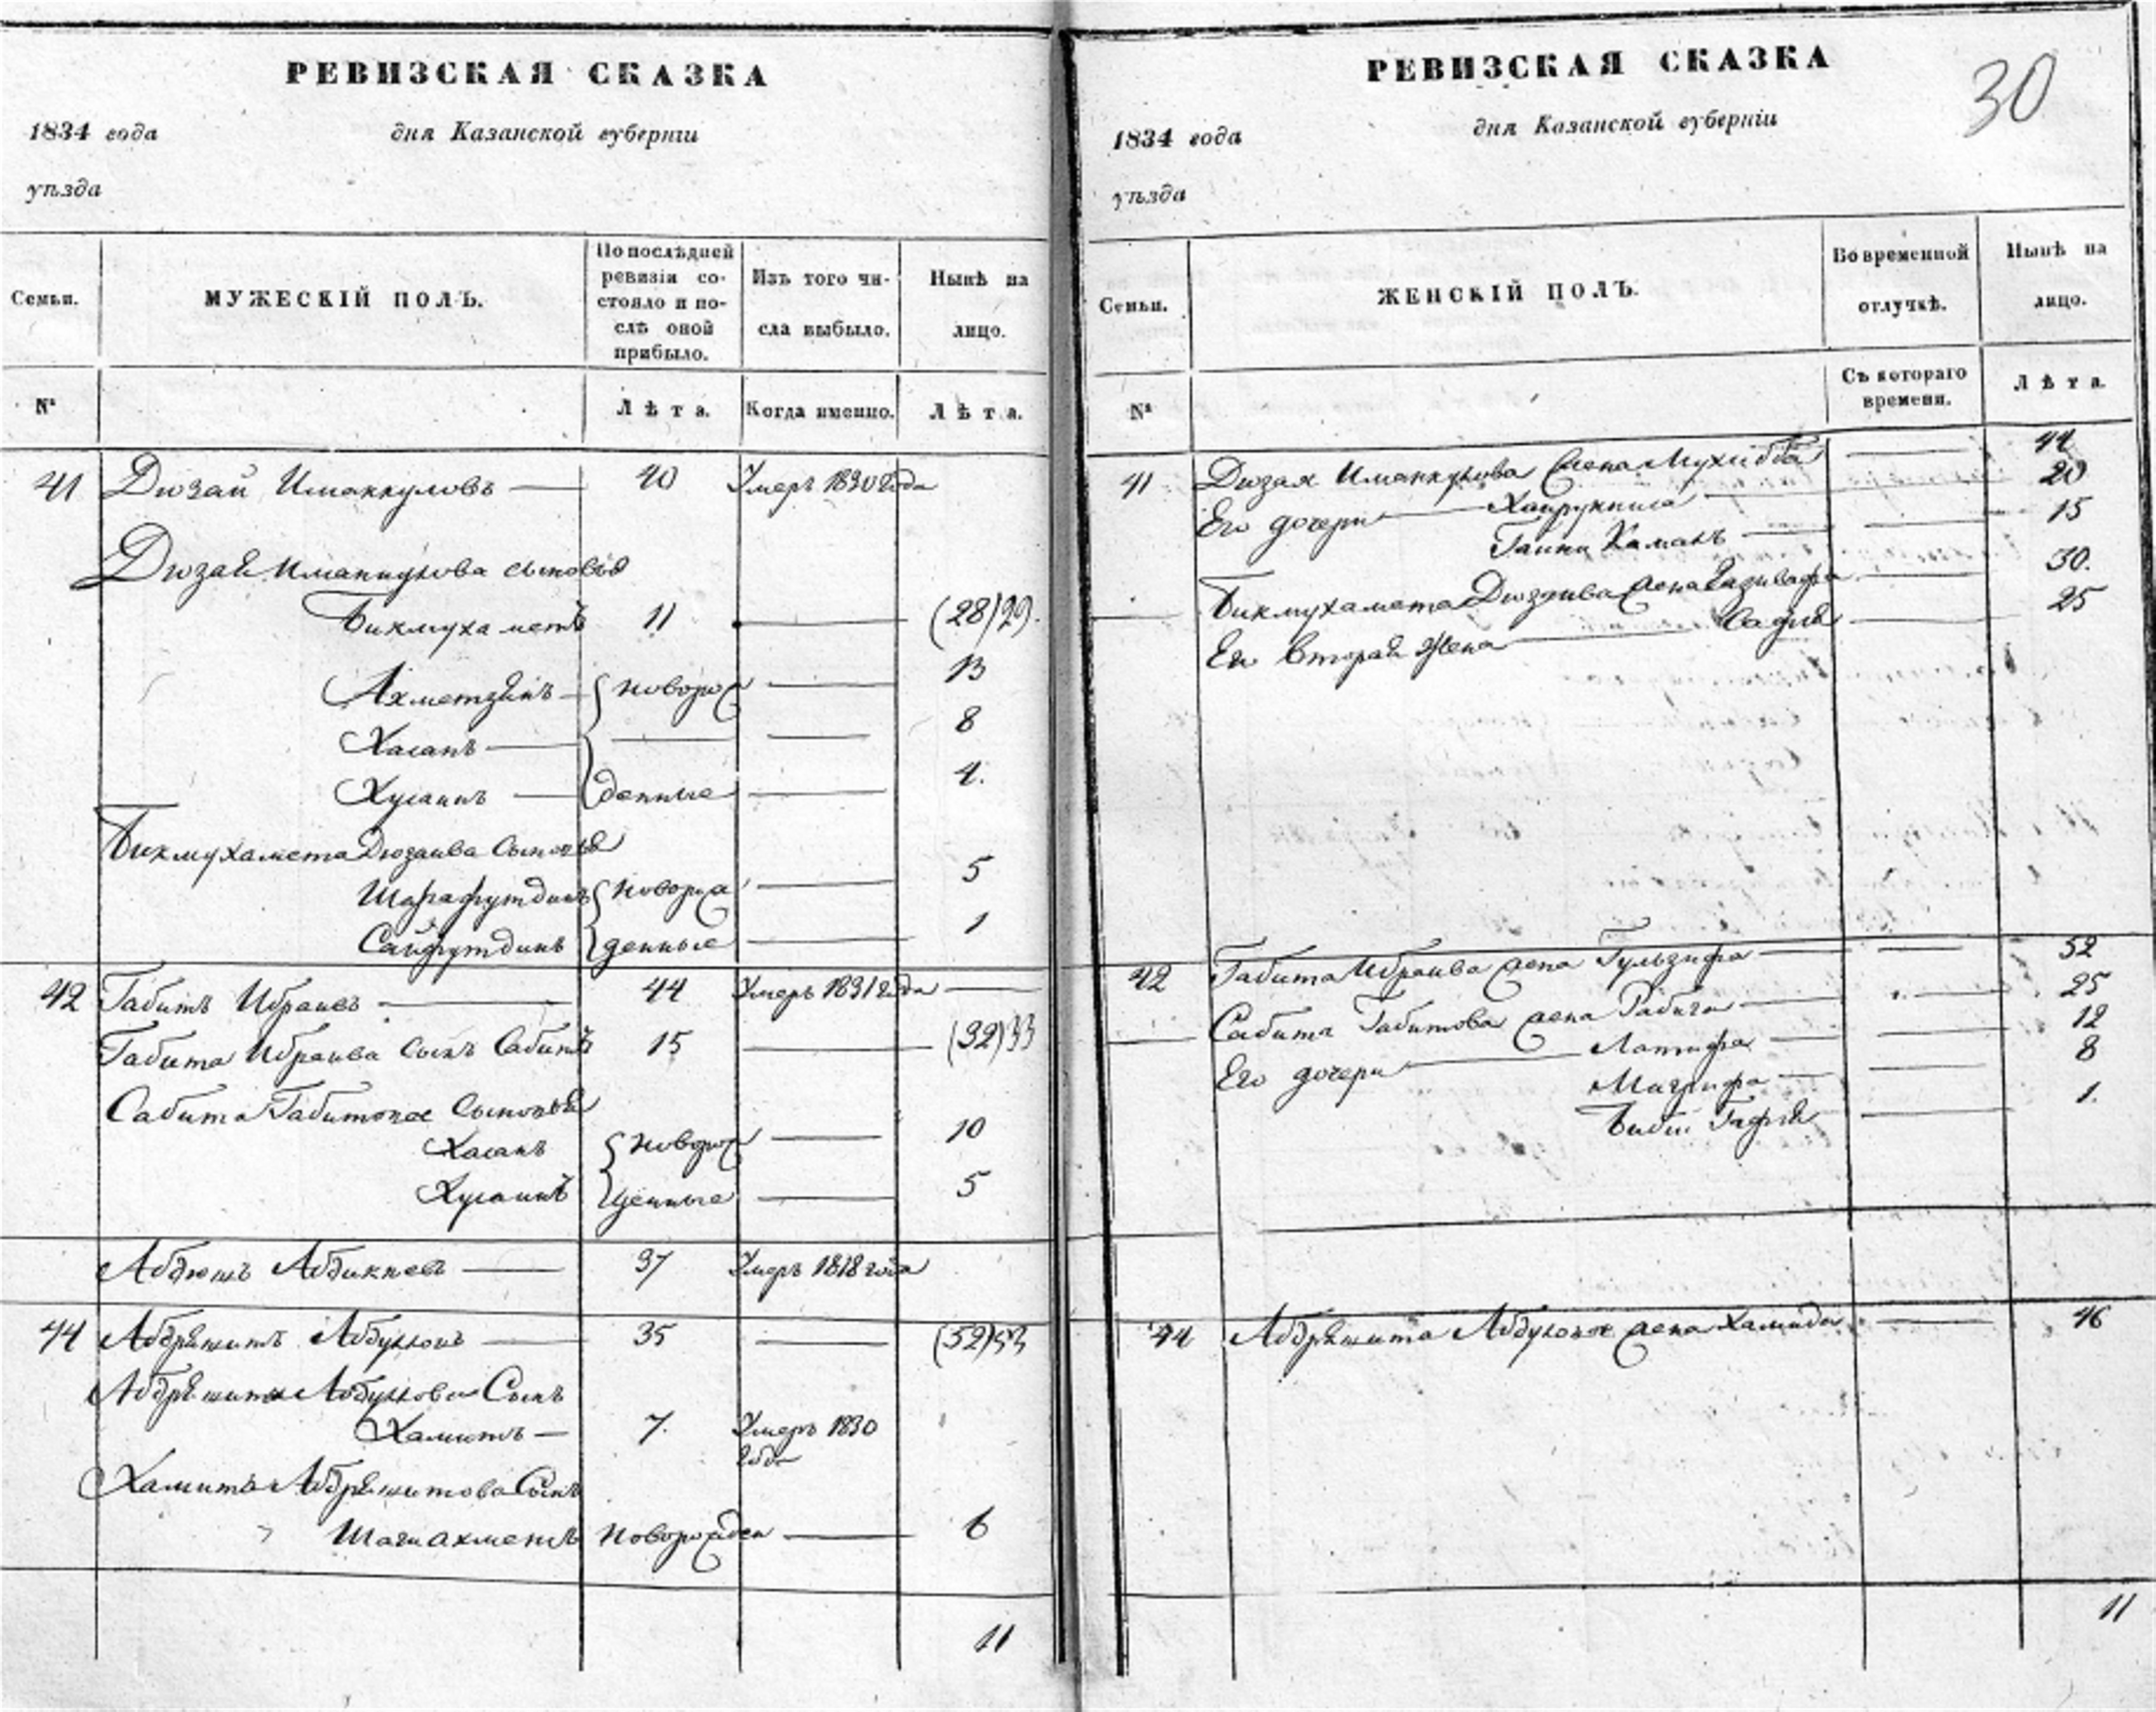 РЕВИЗСКАЯ СКАЗКА
1834 года дня Казанской губерніи
уѣзда
Семьи. МУЖЕСКІЙ ПОЛЪ. По послѣдней ревизіи состояло и послѣ оной прибыло. Изъ того числа выбыло. Нынѣ на лицо.
№ Лѣта. Когда именно. Лѣта.
41 Дюзай Иманкуловъ 40 Умеръ 1830 года
Дюзая Иманкулова сыновья
Бикмухаметъ 11 (28) 29.
Ахметзянъ новорож 13
Хасанъ 8
Хусаинъ денные 4.
Бикмухамета Дюзаева сыновья
Шарафутдинъ новорож 5
Сайфутдинъ денные 1
42 Габитъ Ибраевъ 44 Умеръ 1831 года
Габита Ибраева сынъ Сабитъ 15 (32) 33
Сабита Габитова сыновья
Хасанъ новорож 10
Хусаинъ денные 5
Абдюшъ 37 Умеръ 1818 года
44 Абдряшитъ 35 (52) 53
Абдряшита сынъ
Хамитъ 7. Умеръ 1830
года
Хамита Абдряшитова сынъ
Шагиахметъ новорожден 6
11
РЕВИЗСКАЯ СКАЗКА
30
1834 года дня Казанской губерніи
уѣзда
Семьи. ЖЕНСКІЙ ПОЛЪ. Во временной отлучкѣ. Нынѣ на лицо.
№ Съ котораго времени. Лѣта.
41 Дюзая Иманкулова жена Мухибба 44
Его дочери Хайруниса 20
Гайни Камалъ 15
Бикмухамета Дюзаева жена 30.
Его вторая жена Сафия 25
42 Габита Ибраева жена Гульзифа 52
Сабита Габитова жена Рабига 25
Его дочери Латифа 12
Магрифа 8
Биби 1.
44 Абдряшита жена Хамида 46
11